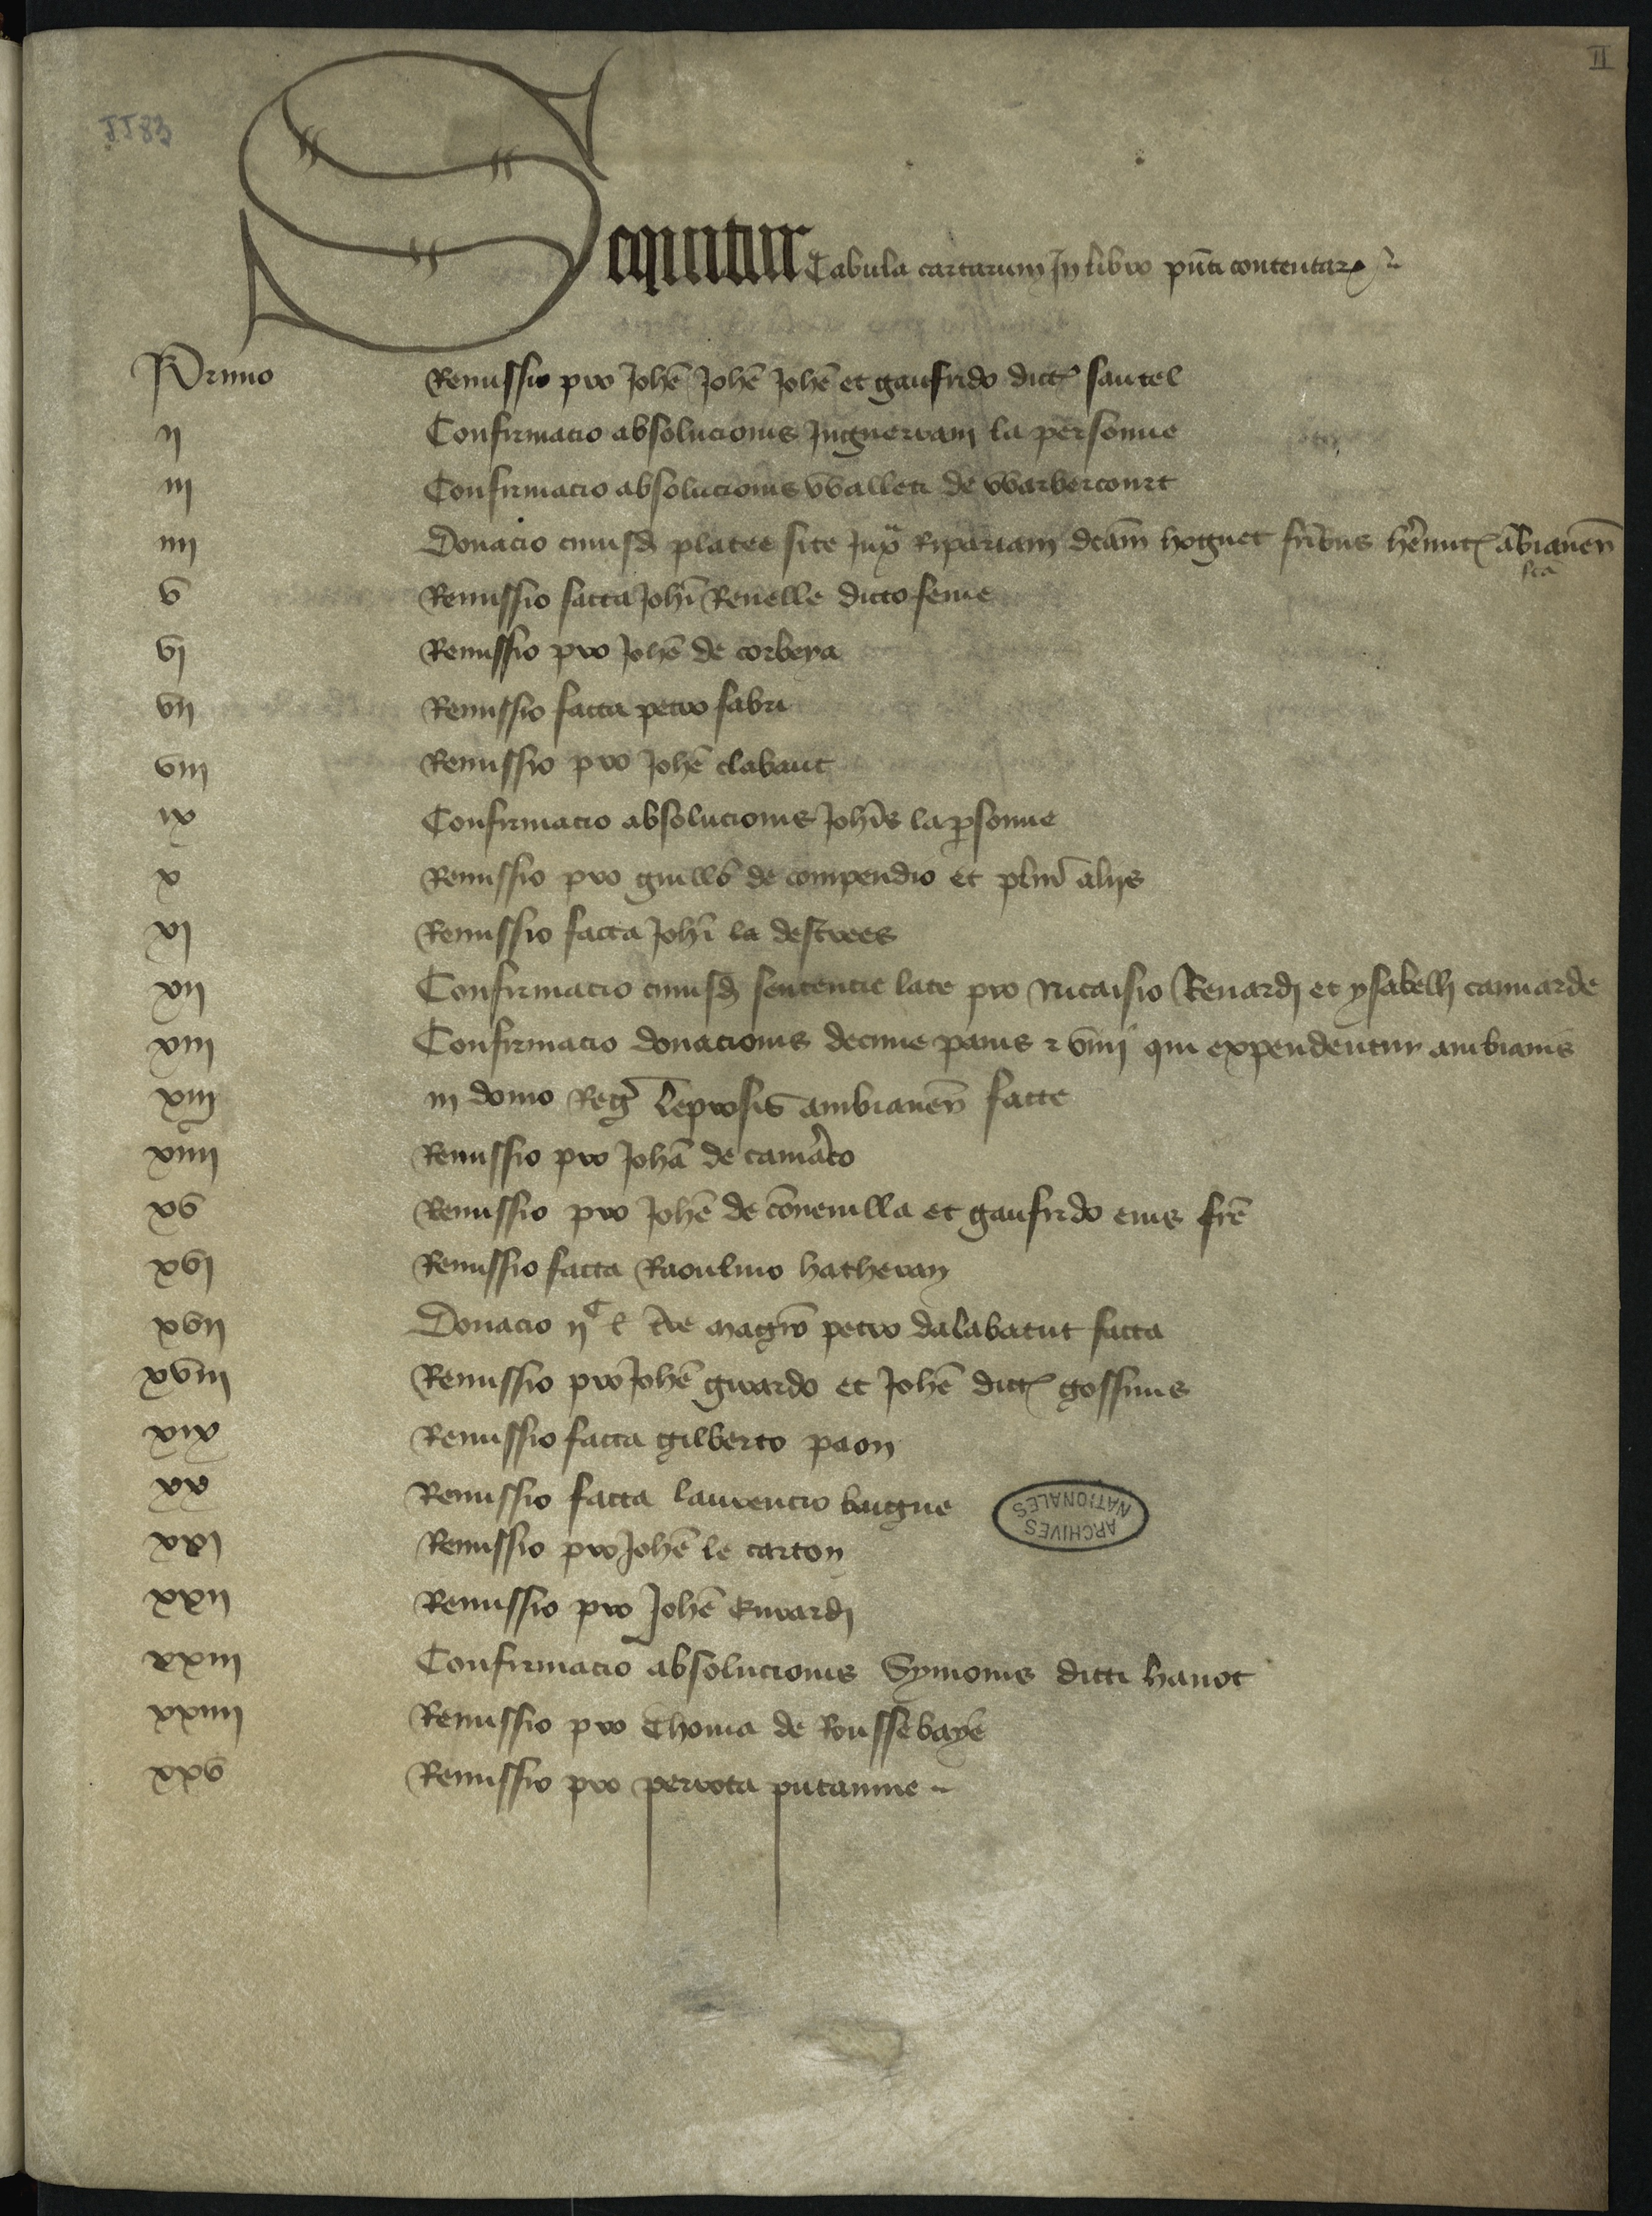 II
JJ83
Sequitur Tabula cartarum In libro pñti contentar
Primo Remissio pro Johē Johē Johē et gaufrido dict sautel
ij Confirmacio absolucionis Inguerrani la personne
iij Confirmacio absolucionis Walleti de Warbercourt
iiij Donacio cuiusd platee site Juxª Ripariam dcām hoguet frībus herēmit ābianeñ
fcā
v Remissio facta Johī Reuelle dicto feme
vj Remissio pro Johē de corbeya
vij Remissio facta petro fabri
viij Remissio pro Johē clabaut
ix Confirmacio absolucionis Johīs la psonne
x Remissio pro guillō de compendio et plur aliis
xj Remissio facta Johī la destrees
xij Confirmacio cuiusd sentencie late pro Nicaisio Renardi et ysabelli cannarde
xiij Confirmacio donacionis decime panis et vini qui expendentur ambianis
xiij in domo Reg leprosis ambianeñ facte
xiiij Remissio pro Johā de camāco
xv Remissio pro Johē de cōneuilla et gaufrido eius frē
xvj Remissio facta Raoulino hatheran
xvij Donacio ijᶜ l tre magrō petro dalabatut facta
xviij Remissio pro Johē girardo et Johē dict gossuins
xix Remissio facta gilberto paon
xx Remissio facta laurencio baigue
xxj Remissio pro Johē le carton
xxij Remissio pro Johē Eurardi
xxiij Confirmacio absolucionis Symonis dicti hanot
xxiiij Remissio pro Thoma de Roussebaye
xxv Remissio pro perrota putamine
ARCHIVES
NATIONALES